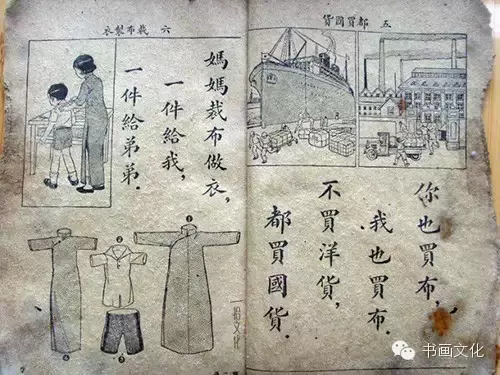 五 都買國貨
你也買布，
我也買布．
不買洋貨，
都買國貨．
六 裁布製衣
媽媽裁布做衣，
一件給我，
一件給弟弟．
书画文化